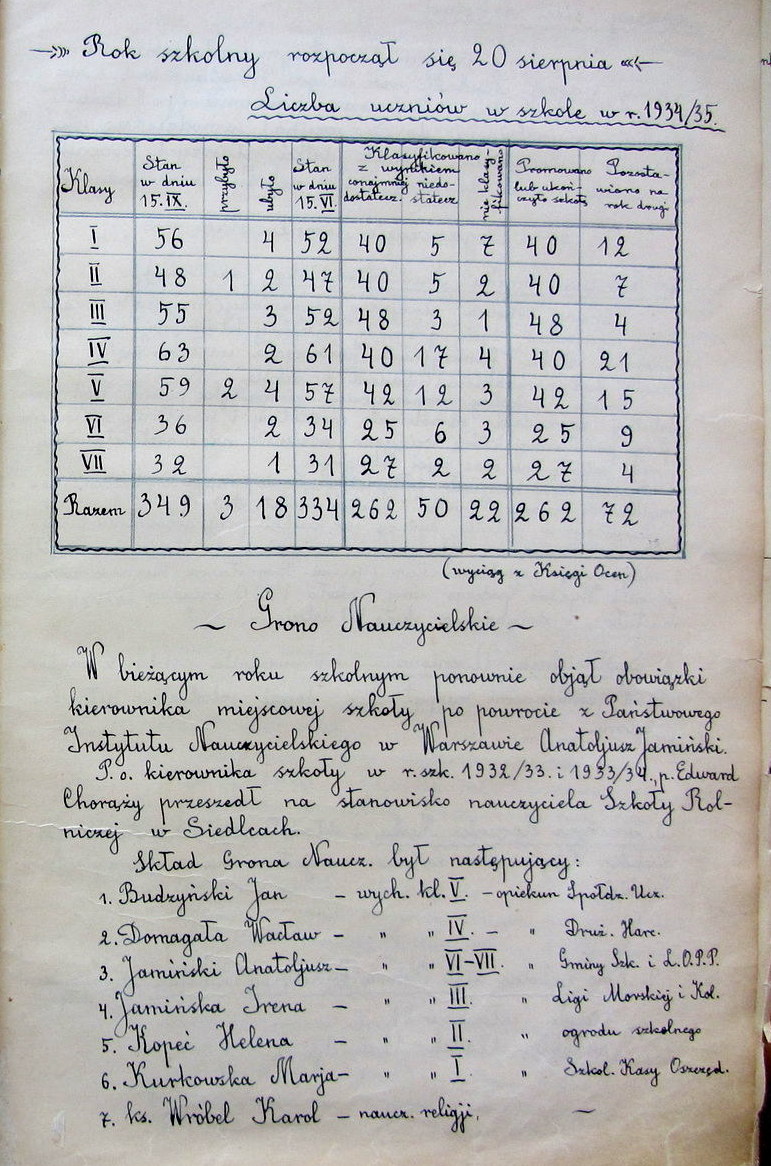 Rok szkolny rozpoczął się 20 sierpnia
Liczba uczniów w szkole w r. 1934/35.
Klasy | Stan w dniu 15.IX. | przybyło | ubyło | Stan w dniu 15.VI. | Klasyfikowano z wynikiem conajmniej dostatecz. | niedostatecz | nie klasyfikowano | Promowano lub ukończyło szkołę | Pozostawiono na rok drugi
I 56 4 52 40 5 7 40 12
II 48 1 2 47 40 5 2 40 7
III 55 3 52 48 3 1 48 4
IV 63 2 61 40 17 4 40 21
V 59 2 4 57 42 12 3 42 15
VI 36 2 34 25 6 3 25 9
VII 32 1 31 27 2 2 27 4
Razem 349 3 18 334 262 50 22 262 72
(wyciąg z Księgi Ocen)
~ Grono Nauczycielskie ~
W bieżącym roku szkolnym ponownie objął obowiązki
kierownika miejscowej szkoły po powrocie z Państwowego
Instytutu Nauczycielskiego w Warszawie Anatoljusz Jamiński.
P.o. kierownika szkoły w r. szk. 1932/33. i 1933/34., p. Edward
Chorąży przeszedł na stanowisko nauczyciela Szkoły Rol-
niczej w Siedlcach.
Skład Grona Naucz. był następujący:
1. Budzyński Jan – wych. kl. V. – opiekun Spółdz. Ucz.
2. Domagała Wacław – " " IV. – " Druż. Harc.
3. Jamiński Anatoljusz – " " VI–VII. " Gminy Szk. i L.O.P.P.
4. Jamińska Irena – " " III. " Ligi Morskiej i Kol.
5. Kopeć Helena – " " II. " ogrodu szkolnego
6. Kurkowska Marja – " " I. " Szkol. Kasy Oszczęd.
7. ks. Wróbel Karol – naucz. religji. –